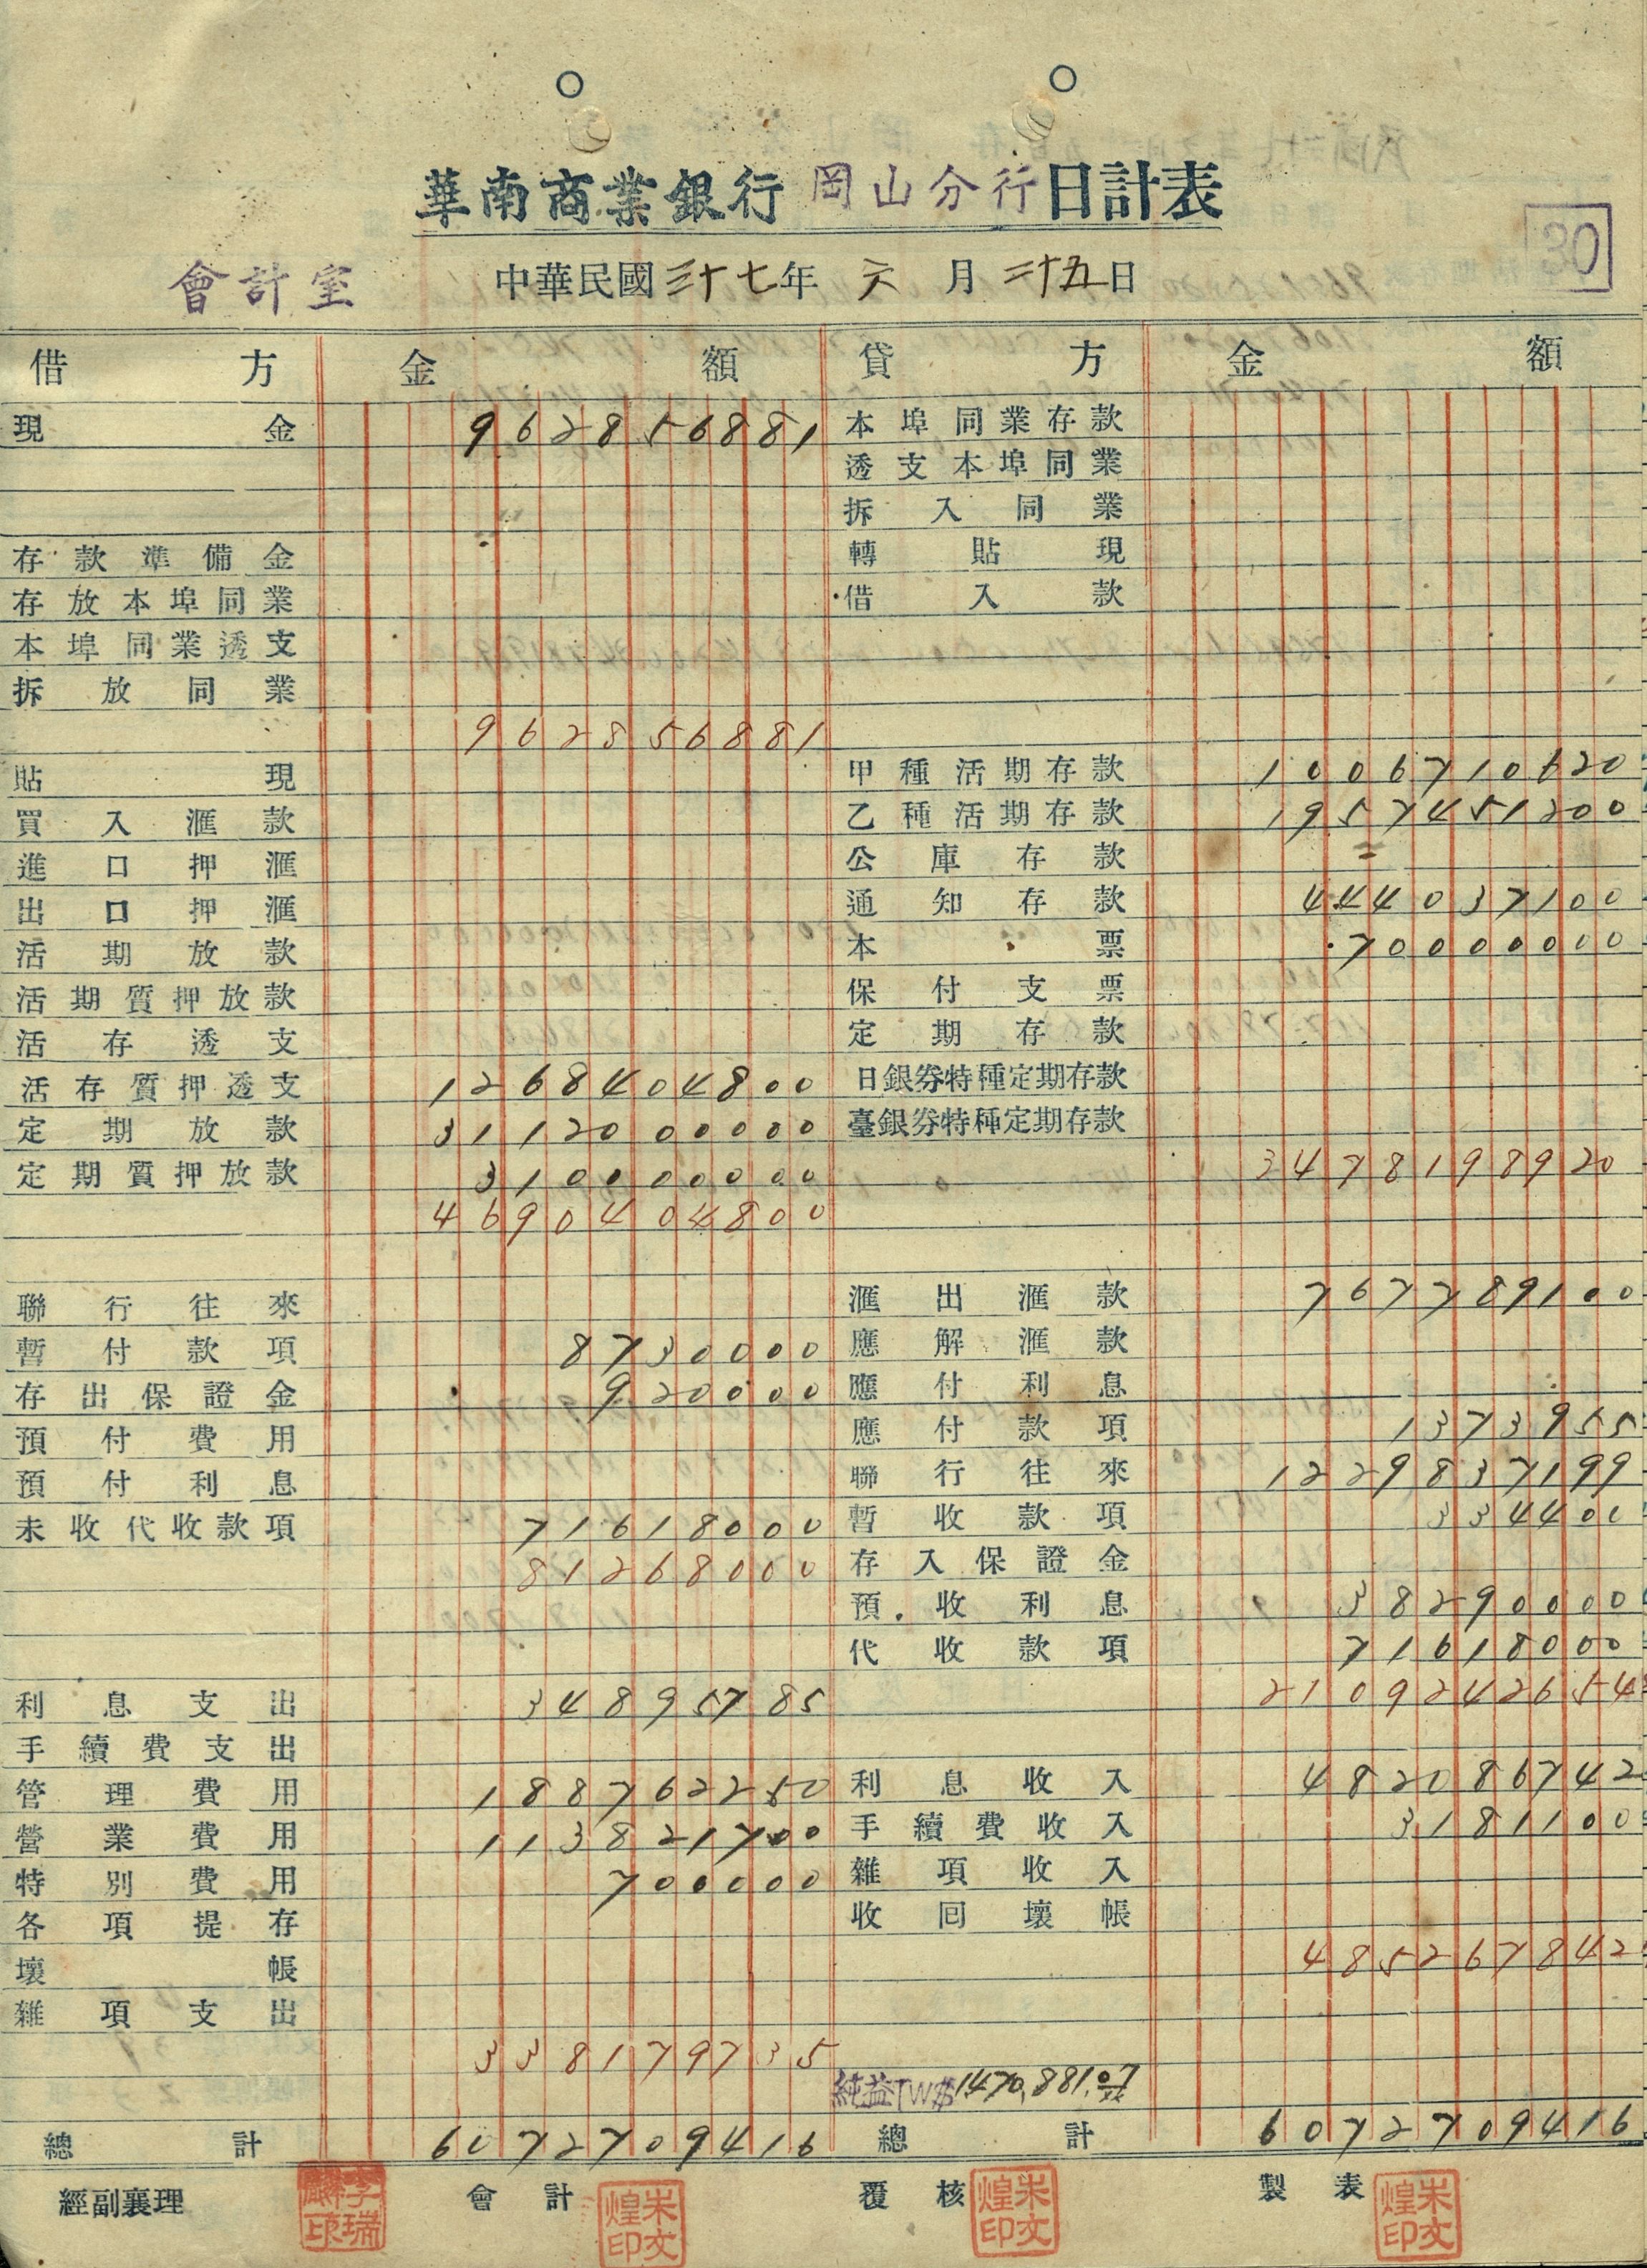 華南商業銀行 岡山分行 日計表
30
會計室 中華民國三十七年 六 月 二十五日
借方 金額 貸方 金額
現金 962856881 本埠同業存款
透支本埠同業
拆入同業
存款準備金 轉貼現
存放本埠同業 借入款
本埠同業透支
拆放同業
962856881
貼現 甲種活期存款 1006710620
買入滙款 乙種活期存款 1957451200
進口押滙 公庫存款
出口押滙 通知存款 444037100
活期放款 本票 70000000
活期質押放款 保付支票
活存透支 定期存款
活存質押透支 1268404800 日銀券特種定期存款
定期放款 3112000000 臺銀券特種定期存款
定期質押放款 310000000 3478198920
4690404800
聯行往來 滙出滙款 767789100
暫付款項 8730000 應解滙款
存出保證金 920000 應付利息
預付費用 應付款項 1373955
預付利息 聯行往來 1229837199
未收代收款項 71618000 暫收款項 334400
81268000 存入保證金
預收利息 38290000
代收款項 71618000
利息支出 34895785 2109242654
手續費支出
管理費用 188762250 利息收入 482086742
營業費用 113821700 手續費收入 3181100
特別費用 700000 雜項收入
各項提存 收回壞帳
壞帳 485267842
雜項支出
338179735
純益TW$1470,881.07
總計 6072709416 總計 6072709416
經副襄理 李瑞麟印 會計 朱文煌印 覆核 朱文煌印 製表 朱文煌印